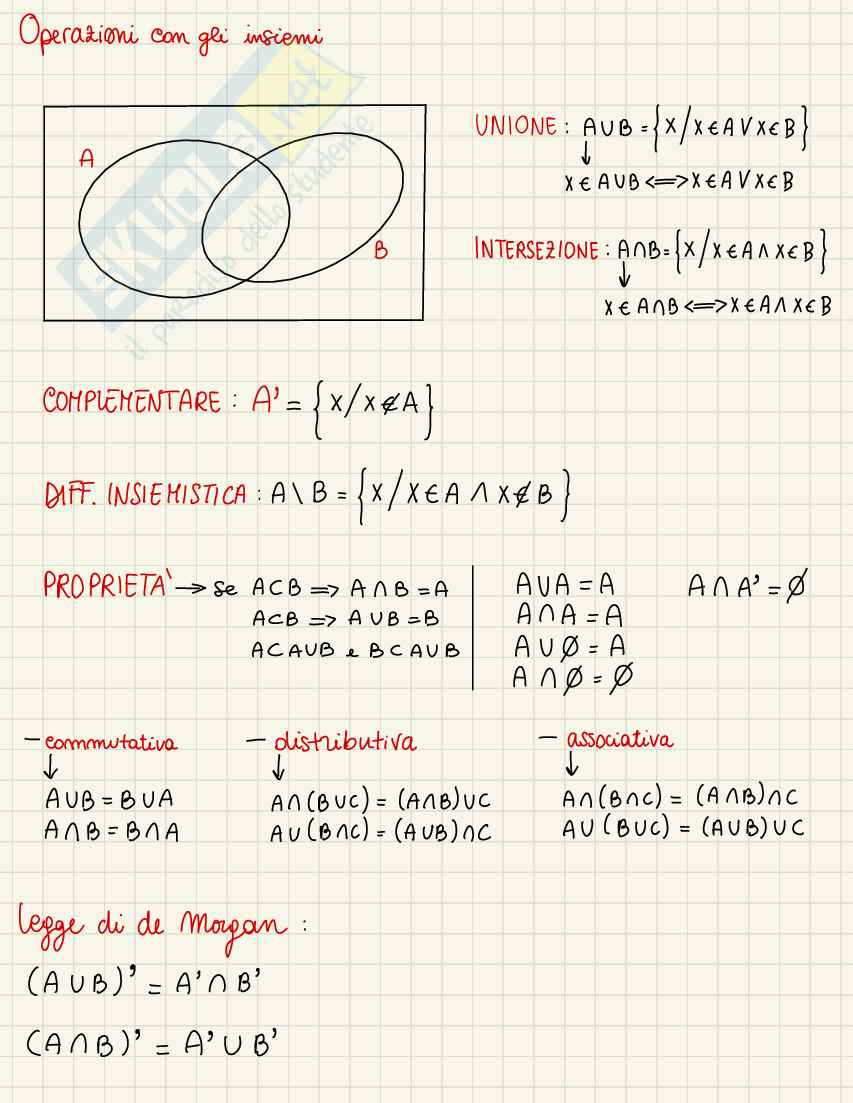 Operazioni con gli insiemi
SKUOLA.net
il paradiso dello studente
A
B
UNIONE : A∪B = {x/x∈A∨x∈B}
↓
x∈A∪B <=> x∈A∨x∈B
INTERSEZIONE : A∩B = {x/x∈A∧x∈B}
↓
x∈A∩B <=> x∈A∧x∈B
COMPLEMENTARE : A' = {x/x∉A}
DIFF. INSIEMISTICA : A\B = {x/x∈A ∧ x∉B}
PROPRIETA' → se A⊂B => A∩B = A
A⊂B => A∪B = B
A⊂A∪B e B⊂A∪B
A∪A = A
A∩A = A
A∪∅ = A
A∩∅ = ∅
A∩A' = ∅
- commutativa
↓
A∪B = B∪A
A∩B = B∩A
- distributiva
↓
A∩(B∪C) = (A∩B)∪C
A∪(B∩C) = (A∪B)∩C
- associativa
↓
A∩(B∩C) = (A∩B)∩C
A∪(B∪C) = (A∪B)∪C
legge di de Morgan :
(A∪B)' = A'∩B'
(A∩B)' = A'∪B'